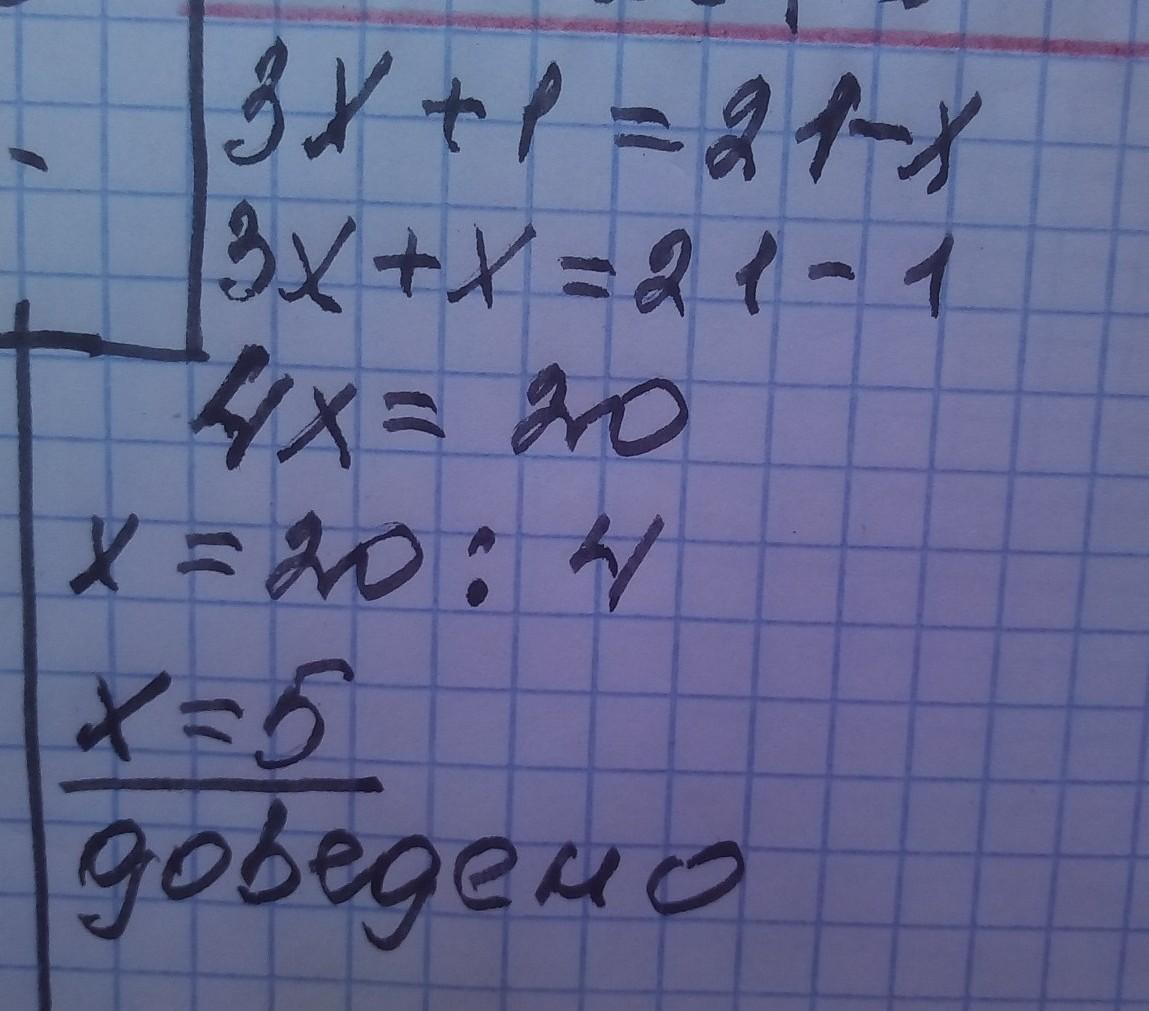 3x + 1 = 21 - x
3x + x = 21 - 1
4x = 20
x = 20 : 4
x = 5
доведено